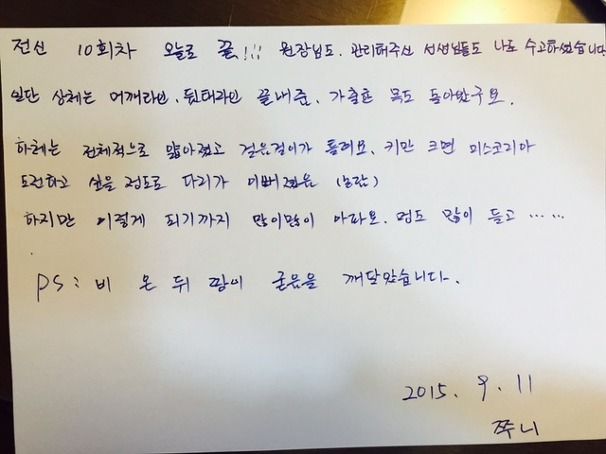 전신 10회차 오늘로 끝!!! 원장님도. 관리해주신 선생님들도 나도 수고하셨습니다
일단 상체는 어깨라인. 뒤태라인 끝내준. 가출한 목도 돌아왔구요.
하체는 전체적으로 얇아졌고 걸음걸이가 틀려요. 키만 크면 미스코리아
도전하고 싶을 정도로 다리가 이뻐졌음 (놀람)
하지만 이렇게 되기까지 많이많이 아파요. 멍도 많이 들고 ……
PS : 비 온 뒤 땅이 굳음을 깨달았습니다.
2015. 9. 11
쭈니